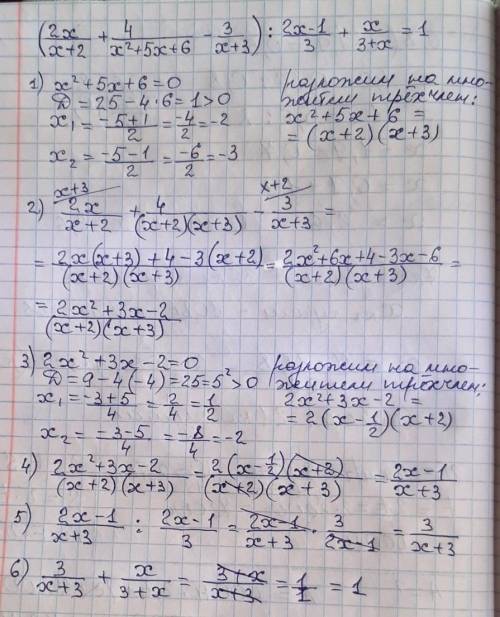 (2x/(x+2) + 4/(x²+5x+6) - 3/(x+3)) : (2x-1)/3 + x/(3+x) = 1
1) x²+5x+6=0
D=25-4·6=1>0
x₁ = (-5+1)/2 = -4/2 = -2
x₂ = (-5-1)/2 = -6/2 = -3
разложим на мно-
жители трёхчлен:
x²+5x+6 =
=(x+2)(x+3)
2) x+3/ 2x/(x+2) + 4/((x+2)(x+3)) - x+2/ 3/(x+3) =
= (2x(x+3)+4-3(x+2))/((x+2)(x+3)) = (2x²+6x+4-3x-6)/((x+2)(x+3)) =
= (2x²+3x-2)/((x+2)(x+3))
3) 2x²+3x-2=0
D=9-4(-4)=25=5²>0
x₁ = (-3+5)/4 = 2/4 = 1/2
x₂ = (-3-5)/4 = -8/4 = -2
разложим на мно-
жители трёхчлен:
2x²+3x-2 =
=2(x-1/2)(x+2)
4) (2x²+3x-2)/((x+2)(x+3)) = 2(x-1/2)(x+2)/((x+2)(x+3)) = (2x-1)/(x+3)
5) (2x-1)/(x+3) : (2x-1)/3 = (2x-1)/(x+3) · 3/(2x-1) = 3/(x+3)
6) 3/(x+3) + x/(3+x) = (3+x)/(x+3) = 1/1 = 1